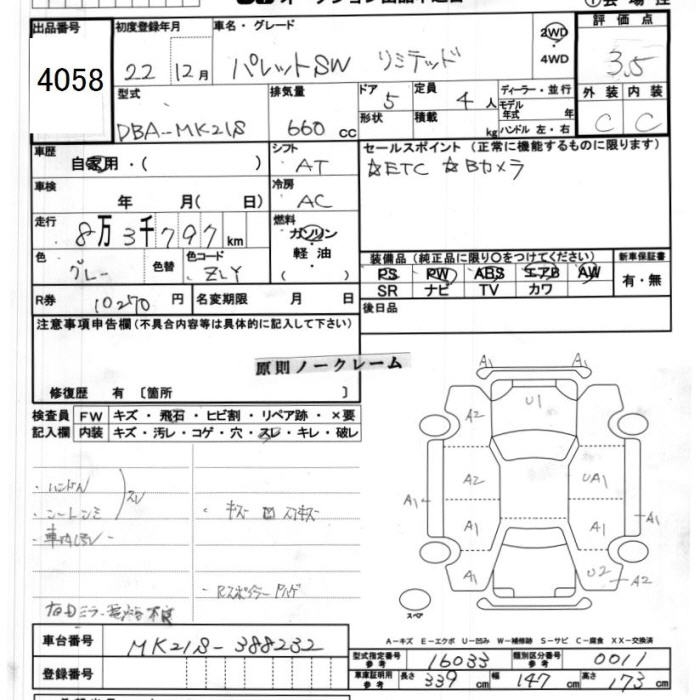 出品番号 初度登録年月 車名・グレード 評価点
4058 22 12月 パレットSW リミテッド 2WD ・ 4WD 3.5
型式 排気量 ドア 5 定員 4人 ディーラー・並行 外装 内装
DBA-MK21S 660cc 形状 積載 kg モデル年式 年 C C
ハンドル 左・右
車歴 自家用・( ) シフト AT セールスポイント(正常に機能するものに限ります)
☆ETC ☆Bカメラ
車検 年 月( 日) 冷房 AC
走行 8万3千797km 燃料 ガソリン 軽・油 ( )
色 グレー 色替 色コード ZLY
装備品(純正品に限り○をつけてください) 新車保証書
PS PW ABS エアB AW 有・無
SR ナビ TV カワ
R券 10270円 名変期限 月 日 後日品
注意事項申告欄(不具合内容等は具体的に記入して下さい)
原則ノークレーム
修復歴 有 〔箇所 〕
検査員 FW キズ・飛石・ヒビ割・リペア跡・×要
記入欄 内装 キズ・汚レ・コゲ・穴・スレ・キレ・破レ
A1 A1
A2 U1
A2 UA1
A1 A1 A1 A1
A1 U2 A2
・ハンドル スレ
スペア
A-キズ E-エクボ U-凹み W-補修跡 S-サビ C-腐食 XX-交換済
車台番号 MK21S-388232
型式指定番号 参考 16033 類別区分番号 参考 0011
登録番号
車庫証明用 参考 長さ 339cm 幅 147cm 高さ 173cm